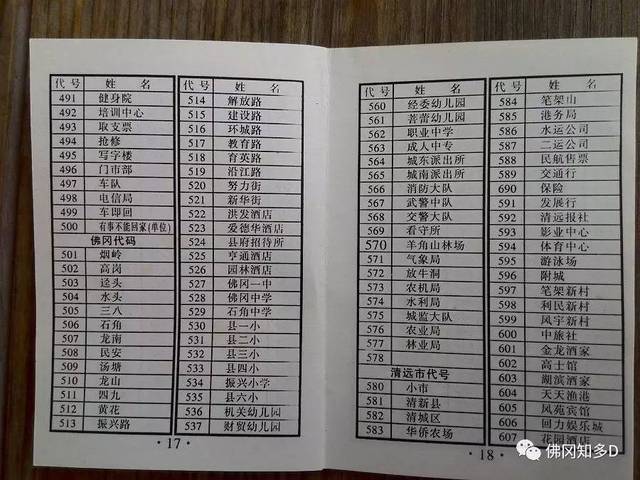 代号 姓名
491 健身院
492 培训中心
493 取支票
494 抢修
495 写字楼
496 门市部
497 车队
498 电信局
499 车即回
500 有事不能回家(单位)
佛冈代码
501 烟岭
502 高岗
503 迳头
504 水头
505 三八
506 石角
507 龙南
508 民安
509 汤塘
510 龙山
511 四九
512 黄花
513 振兴路
代号 姓名
514 解放路
515 建设路
516 环城路
517 教育路
518 育英路
519 沿江路
520 努力街
521 新华街
522 洪发酒店
523 爱德华酒店
524 县府招待所
525 亨通酒店
526 园林酒店
527 佛冈一中
528 佛冈中学
529 石角中学
530 县一小
531 县二小
532 县三小
533 县四小
534 振兴小学
535 县六小
536 机关幼儿园
537 财贸幼儿园
·17·
代号 姓名
560 经委幼儿园
561 菩蕾幼儿园
562 职业中学
563 成人中专
564 城东派出所
565 城南派出所
566 消防大队
567 武警中队
568 交警大队
569 看守所
570 羊角山林场
571 气象局
572 放牛洞
573 农机局
574 水利局
575 城监大队
576 农业局
577 林业局
578
清远市代号
580 小市
581 清新县
582 清城区
583 华侨农场
代号 姓名
584 笔架山
585 港务局
586 水运公司
587 二运公司
588 民航售票
589 交通行
590 保险
591 发展行
592 清远报社
593 影业中心
594 体育中心
595 游泳场
596 附城
597 笔架新村
598 利民新村
599 凤宇新村
600 中旅社
601 金龙酒家
602 高士馆
603 湖滨酒家
604 天天渔港
605 凤苑宾馆
606 回力娱乐城
607 花园酒店
·18·
佛冈知多D